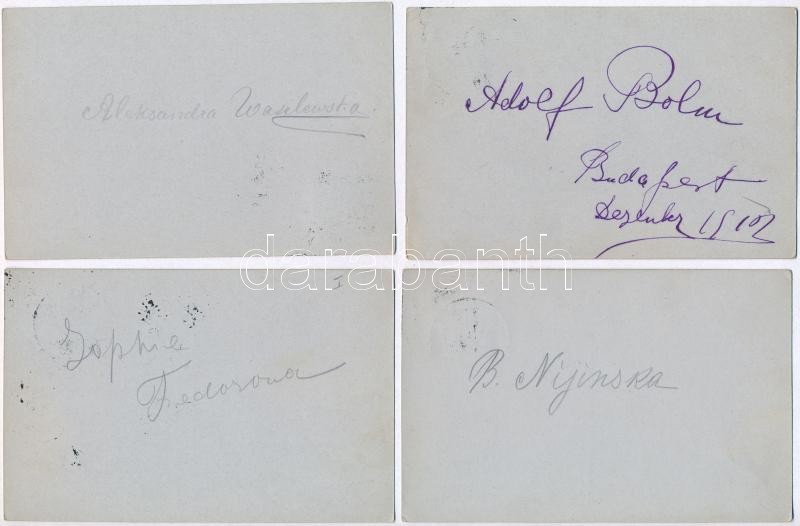 Aleksandra Wasilewska
Adolf Bolm
Budapest
Dezember 1912
darabanth
I
Sophie
Fedorowa
B. Nijinska